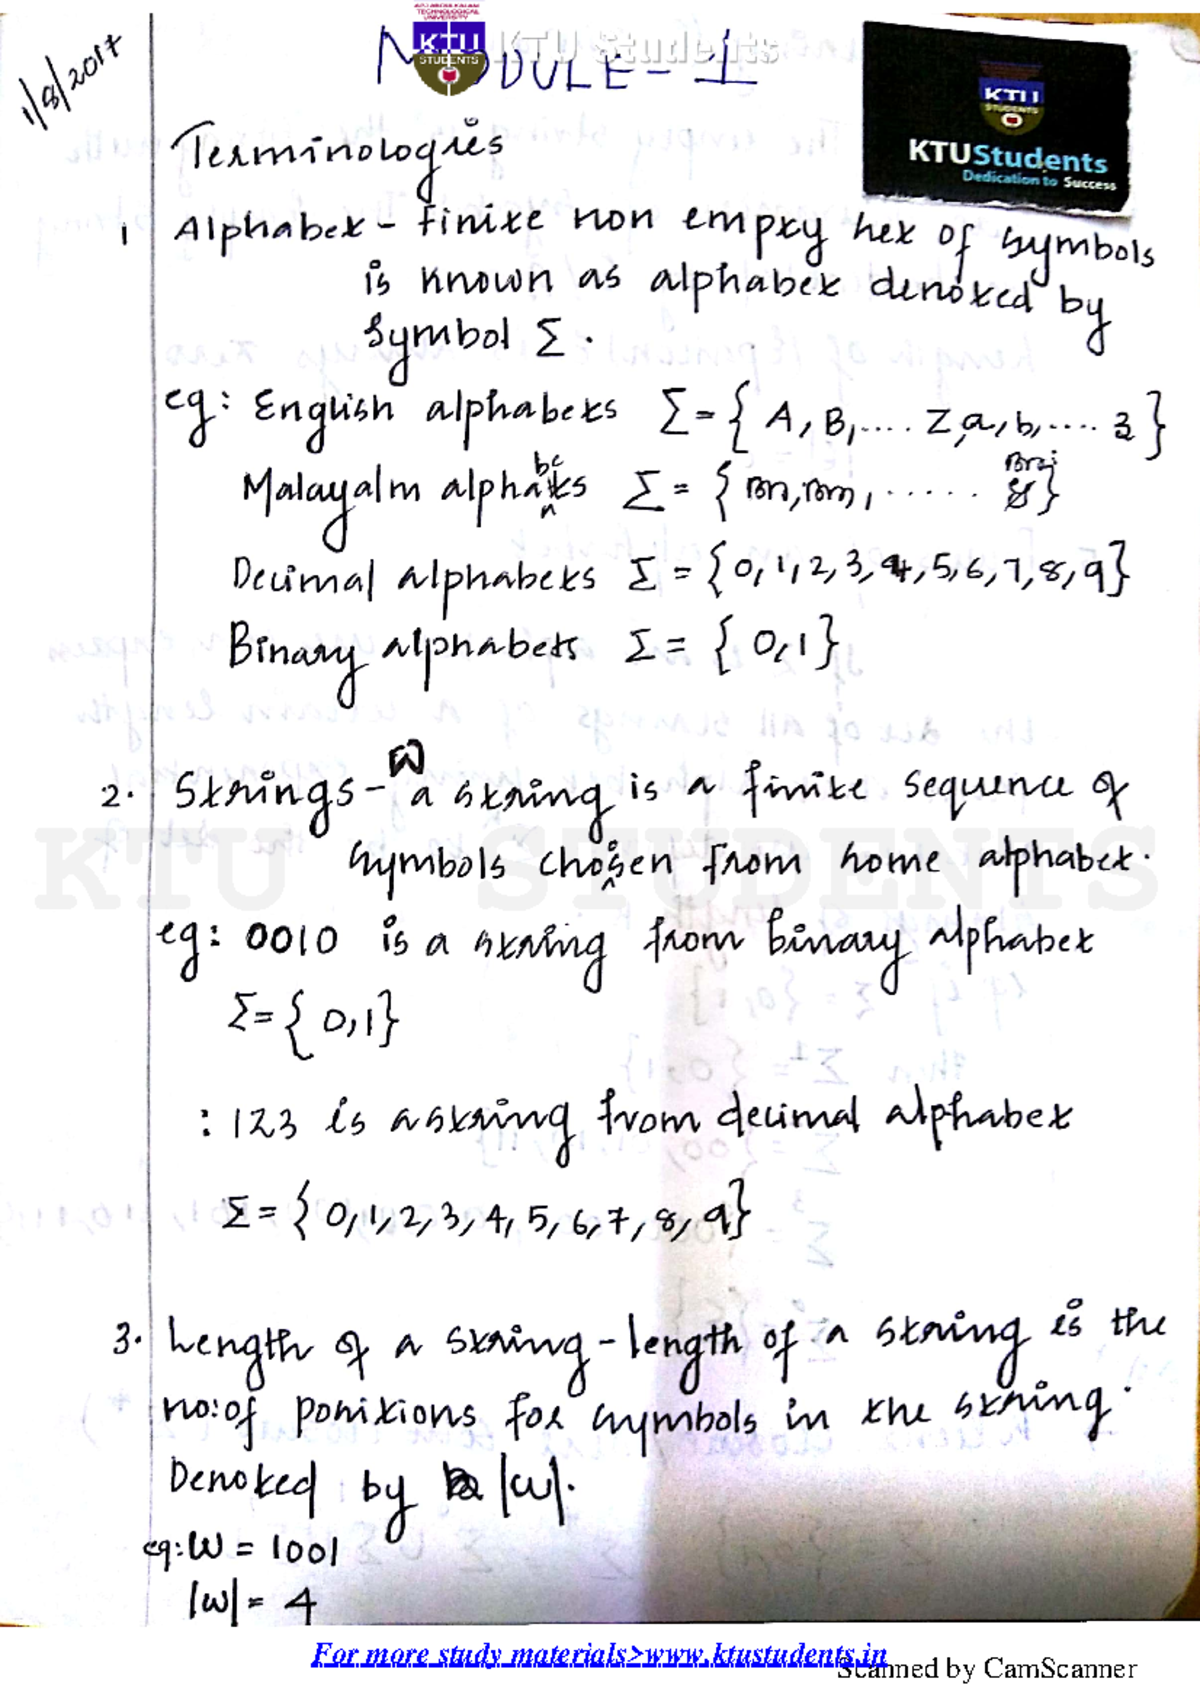 APJ ABDUL KALAM TECHNOLOGICAL UNIVERSITY
KTU STUDENTS
KTU Students
1/8/2017
MODULE - 1
KTU STUDENTS
KTUStudents
Dedication to Success
Terminologies
1 Alphabet - Finite non empty set of symbols
is known as alphabet denoted by
symbol Σ.
eg: English alphabets Σ = { A, B, .... Z, a, b, .... z }
Malayalm alphabets Σ = {
Decimal alphabets Σ = {0, 1, 2, 3, 4, 5, 6, 7, 8, 9}
Binary alphabets Σ = { 0, 1 }
2. Strings - a string is a finite sequence of
symbols chosen from some alphabet.
KTU STUDENTS
eg: 0010 is a string from binary alphabet
Σ = { 0, 1}
: 123 is a string from decimal alphabet
Σ = { 0, 1, 2, 3, 4, 5, 6, 7, 8, 9}
3. Length of a string - length of a string is the
no: of positions for symbols in the string.
Denoted by |w|.
eg: w = 1001
|w| = 4
For more study materials>www.ktustudents.in
Scanned by CamScanner